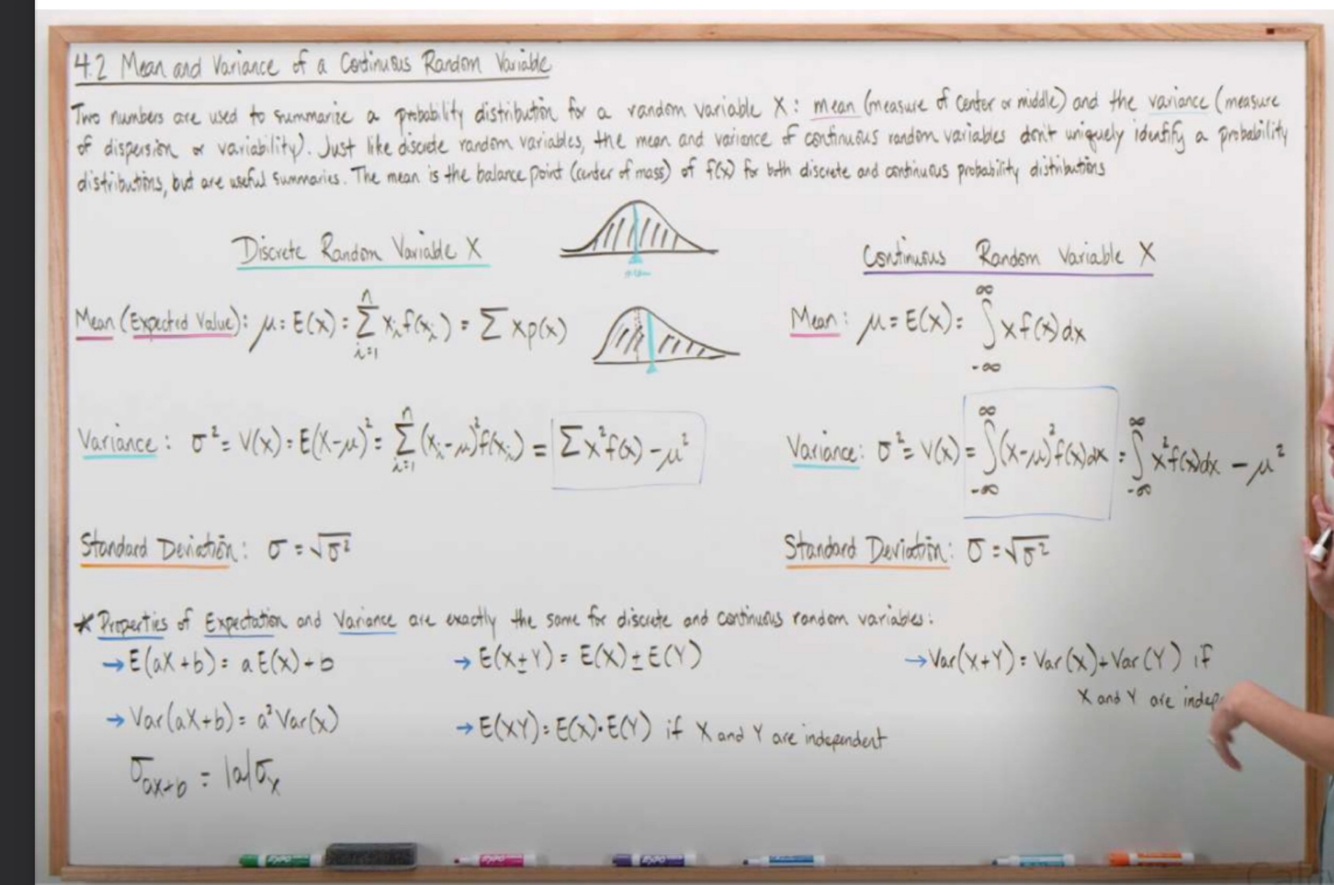 4.2 Mean and Variance of a Continuous Random Variable
Two numbers are used to summarize a probability distribution for a random variable X: mean (measure of center or middle) and the variance (measure
of dispersion or variability). Just like discrete random variables, the mean and variance of continuous random variables don't uniquely identify a probability
distributions, but are useful summaries. The mean is the balance point (center of mass) of f(x) for both discrete and continuous probability distributions
Discrete Random Variable X
mean
Continuous Random Variable X
Mean (Expected Value): μ = E(x) = Σ_{i=1}^{n} x_i f(x_i) = Σ x p(x)
Mean: μ = E(x) = ∫_{-∞}^{∞} x f(x) dx
Variance: σ² = V(x) = E(X-μ)² = Σ_{i=1}^{n} (x_i-μ)² f(x_i) = Σx²f(x) - μ²
Variance: σ² = V(x) = ∫_{-∞}^{∞} (x-μ)² f(x) dx = ∫_{-∞}^{∞} x² f(x) dx - μ²
Standard Deviation: σ = √σ²
Standard Deviation: σ = √σ²
* Properties of Expectation and Variance are exactly the same for discrete and continuous random variables:
→ E(aX+b) = a E(x) + b
→ E(X±Y) = E(X) ± E(Y)
→ Var(X+Y) = Var(x) + Var(Y) if
X and Y are indep
→ Var(aX+b) = a² Var(x)
→ E(XY) = E(X)·E(Y) if X and Y are independent
σ_{ax+b} = |a|σ_x
EXPO
EXPO
EXPO